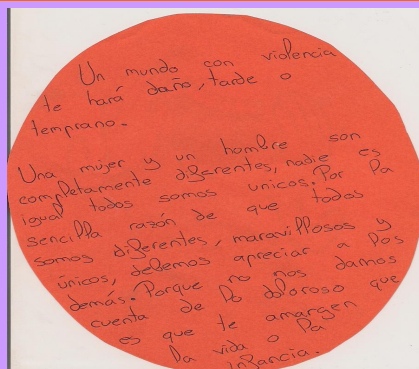 Un mundo con violencia
te hará daño, tarde o
temprano.
Una mujer y un hombre son
completamente diferentes, nadie es
igual todos somos unicos. Por la
sencilla razón de que todos
somos diferentes, maravillosos y
únicos, debemos apreciar a los
demás. Porque no nos damos
cuenta de lo doloroso que
es que te amargen
la vida o la
infancia.